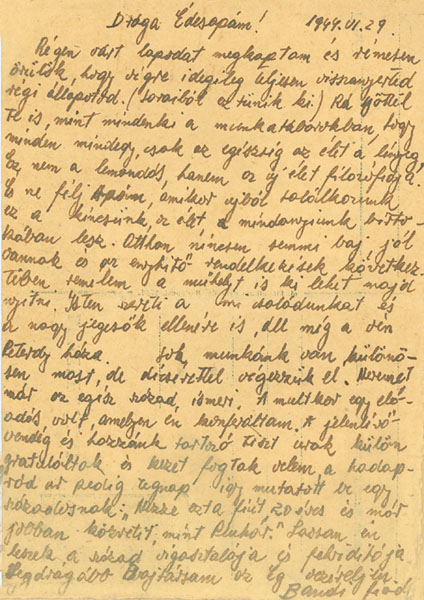 Drága Édesapám! 1944.VI.29.
Régen várt lapodat megkaptam és rémesen
örülök, hogy végre idegileg teljesen visszanyerted
régi állapotod. (soraiból ez tűnik ki) Rá jöttél
Te is, mint mindenki a munkatáborokban, hogy
minden mindegy, csak az egészség az élet a lényeg.
Ez nem a lemondás, hanem az új élet filozófiája.
És ne félj Apám, amikor újból találkozunk
ez a kincsünk, az élet a mindannyiunk birto-
kában lesz. Otthon nincsen semmi baj jól
vannak és az enyhítő rendelkezések következ-
tében remélem a műhelyt is ki lehet majd
nyitni. Isten szereti a mi családunkat és
a nagy jégesők ellenére is, áll még a vén
Peterdy háza. Sok munkánk van különö-
sen most, de dicsérettel végezzük el. Nevemet
már az egész század ismeri. A multkor egy elő-
adás volt, amelyen én konferáltam. A jelenlévő
vendég és hozzánk tartozó tiszt urak külön
gratuláltak és kezet fogtak velem, a hadap-
ród úr pedig tegnap így mutatott be egy
századosnak: "Nézze ezt a fiút 20 éves és már
jobban közvetít, mint Pluhár." Lassan én
leszek a század vigasztalója és felvidítója
Legdrágább Bajtársam az Ég vezéreljen
Bandi fiad